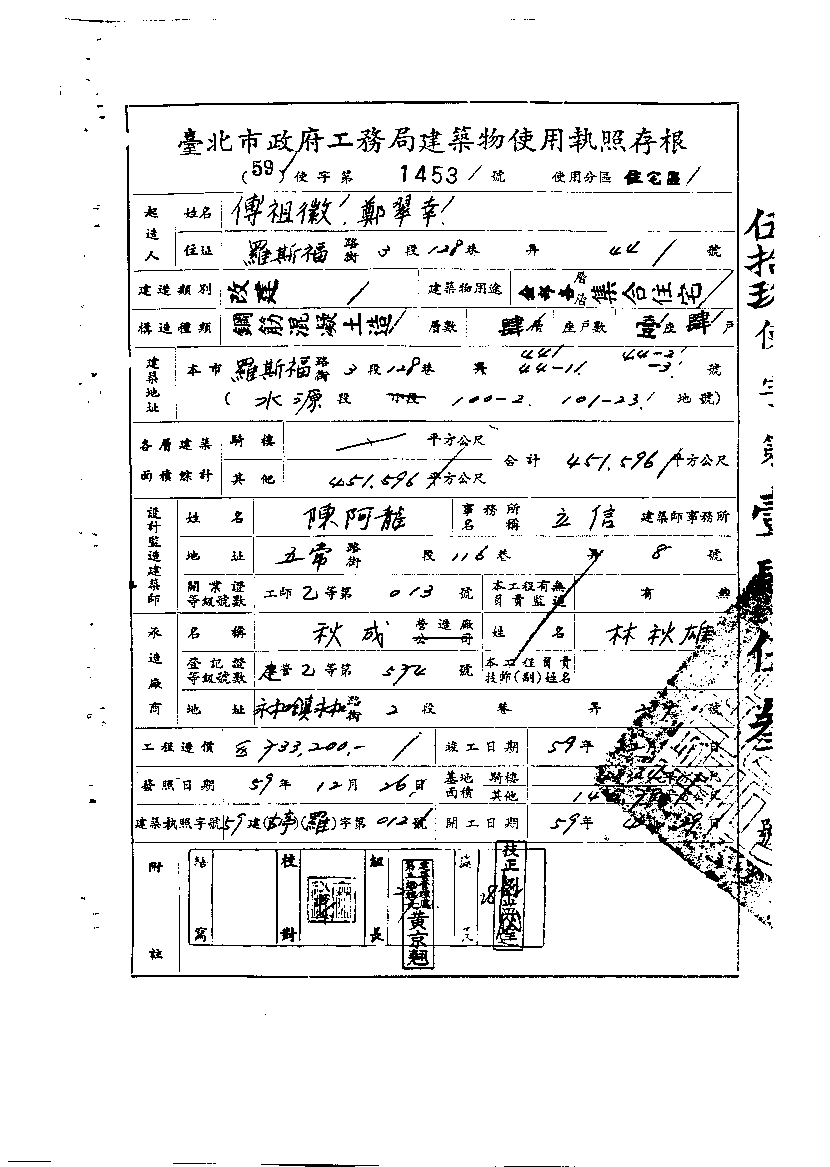 臺北市政府工務局建築物使用執照存根
(59)使字第 1453 號 使用分區 住宅區
起造人 姓名 傅祖徽 鄭翠幸
住址 羅斯福 路街 3 段 128 巷 弄 44 號
建造類別 改建 建築物用途 層 層 集合住宅
構造種類 鋼筋混凝土造 層數 肆層 座戶數 座 肆戶
建築地址 本市 羅斯福 路街 3 段 128 巷 弄 44 44-1 44-2 -3 號
(水源段 小段 100-2 101-23 地號)
各層建築面積綜計 騎樓 平方公尺 合計 451.596 平方公尺
其他 451.596 平方公尺
設計監造建築師 姓名 陳阿龍 事務所名稱 立信 建築師事務所
地址 五常 路街 段 116 巷 弄 8 號
開業證等級號數 工師乙等第 013 號 本工程有無負責監造 有 無
承造廠商 名稱 秋成 營造廠公司 姓名 林秋雄
登記證等級號數 建營乙等第 574 號 本工程負責技師(副)姓名
地址 永和鎮永和 路街 2 段 巷 弄 號
工程造價 733,200.- 竣工日期 59 年 日
發照日期 59 年 12 月 26 日 基地面積 騎樓
其他
建築執照字號 59 建 (羅)字第 012 號 開工日期 59 年
附註 校對 組長 黃京翹 技正
伍拾玖使字第壹